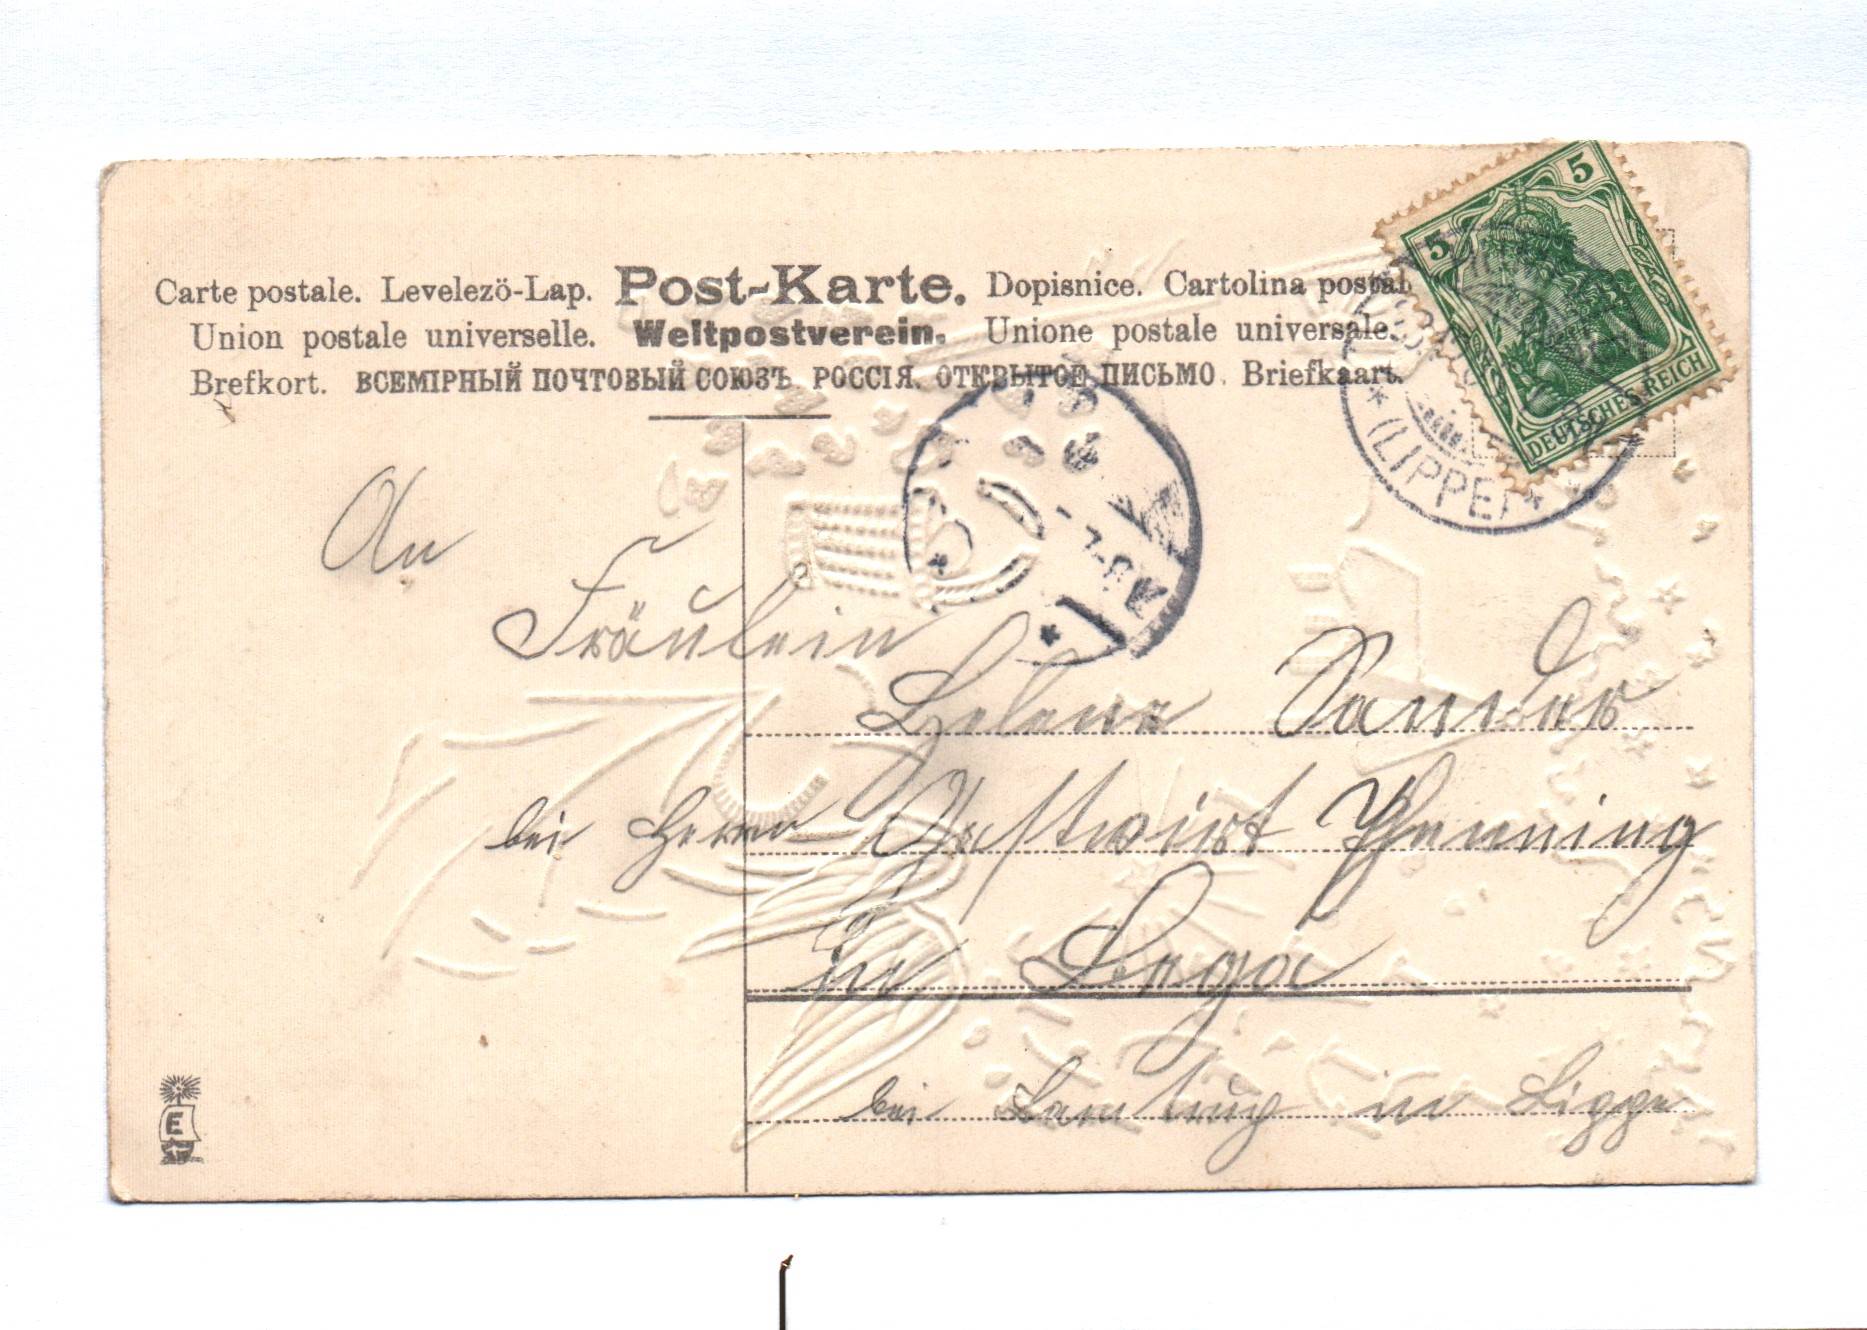 Carte postale. Levelezö-Lap. Post-Karte. Dopisnice. Cartolina postal
Union postale universelle. Weltpostverein. Unione postale universale.
Brefkort. ВСЕМІРНЫЙ ПОЧТОВЫЙ СОЮЗЪ. РОССІЯ. ОТКРЫТОЕ ПИСЬМО. Briefkaart.
5
5
DEUTSCHES REICH
* (LIPPE) *
An
Fräulein
Helene Sander
bei Herrn Gastwirt Henning
in Lega
bei in Lippe
E